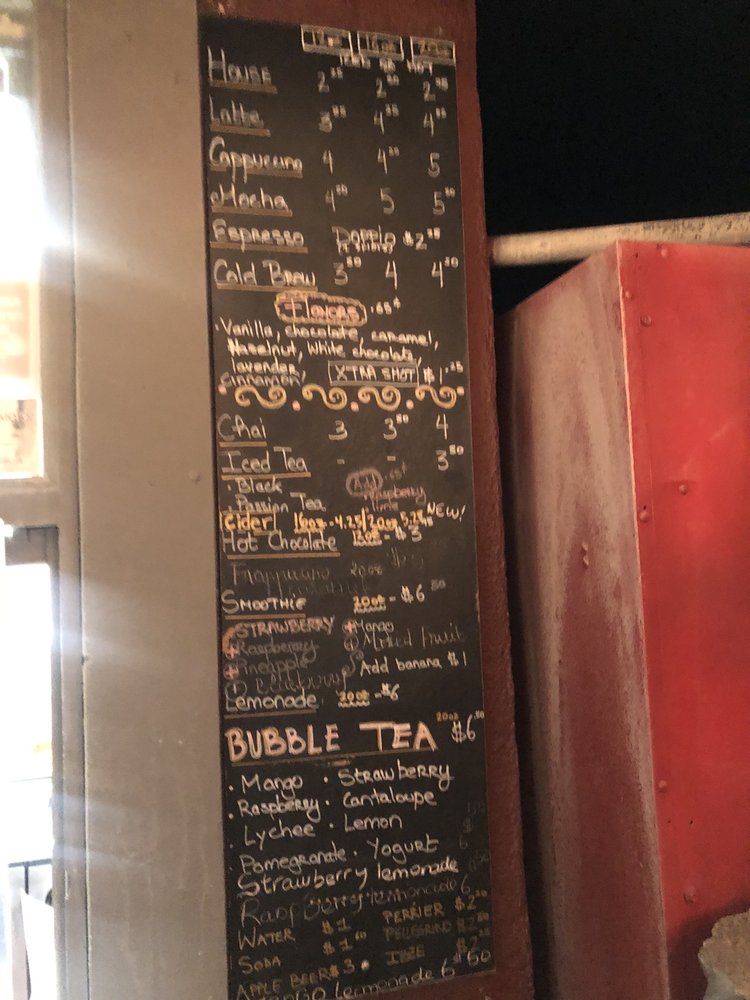 12oz 16oz 20oz
House 2 2 2
Latte 3 4 4
Cappuccino 4 4 5
Mocha 4 5 5.50
Espresso Doppio $2
Cold Brew 3.50 4 4.50
Flavors .65¢
• Vanilla, chocolate, caramel,
Hazelnut, White chocolate,
lavender
cinnamon XTRA SHOT $1.25
Chai 3 3.50 4
Iced Tea - - 3.50
• Black Add .65¢
• Passion Tea raspberry
Cider 16oz - 4.25/20oz 5.25 NEW!
Hot Chocolate 12oz - $3
Frappuccino 20oz
Smoothie 20oz - $6.50
+ STRAWBERRY + Mango
+ Raspberry + Mixed Fruit
+ Pineapple Add banana $1
Lemonade 20oz - $6
BUBBLE TEA 20oz $6.50
• Mango • Strawberry
• Raspberry • Cantaloupe
• Lychee • Lemon
Pomegranate • Yogurt
Strawberry lemonade
Raspberry lemonade 6
WATER $1 PERRIER $2
SODA $1.60 PELLEGRINO $2
APPLE BEER $3
Lemonade 6.50